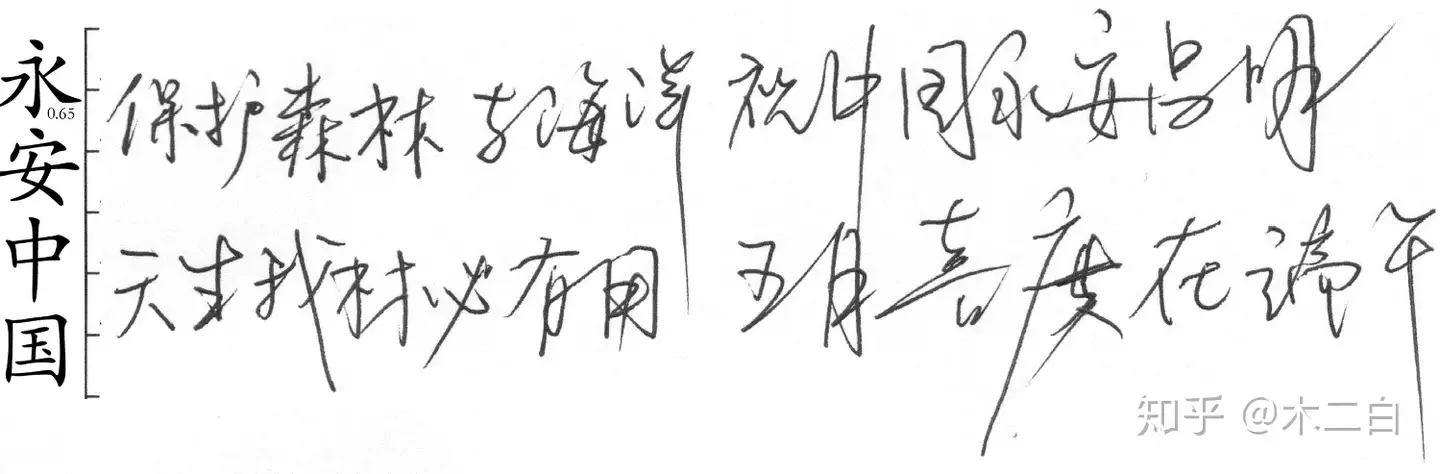 永安中国
0.65
保护森林与海洋 祝中国永安昌明
天生我材必有用 五月喜度在端午
知乎 @木二白